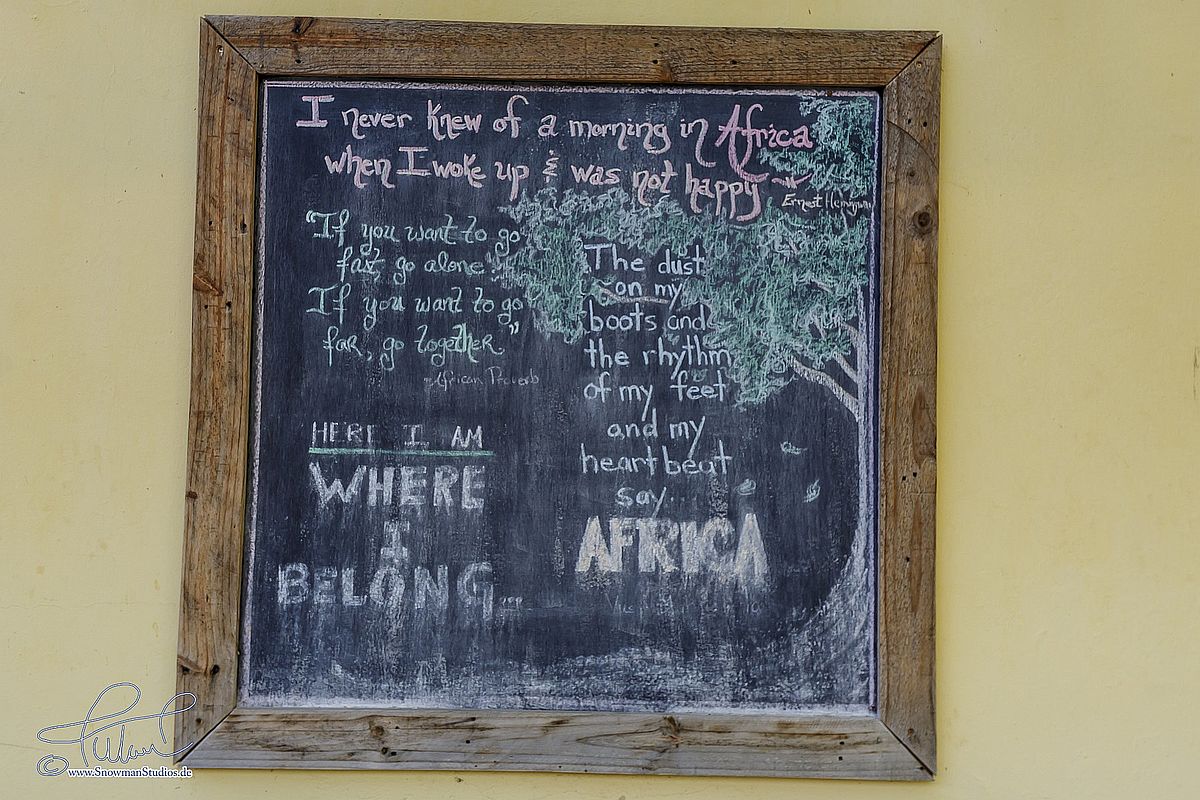 I never knew of a morning in Africa
when I woke up & was not happy ~
Ernest Hemingway
"If you want to go
fast go alone".
If you want to go
far, go together"
African Proverb
HERE I AM
WHERE
I
BELONG...
The dust
on my
boots and
the rhythm
of my feet
and my
heartbeat
say...
AFRICA
© www.SnowmanStudios.de